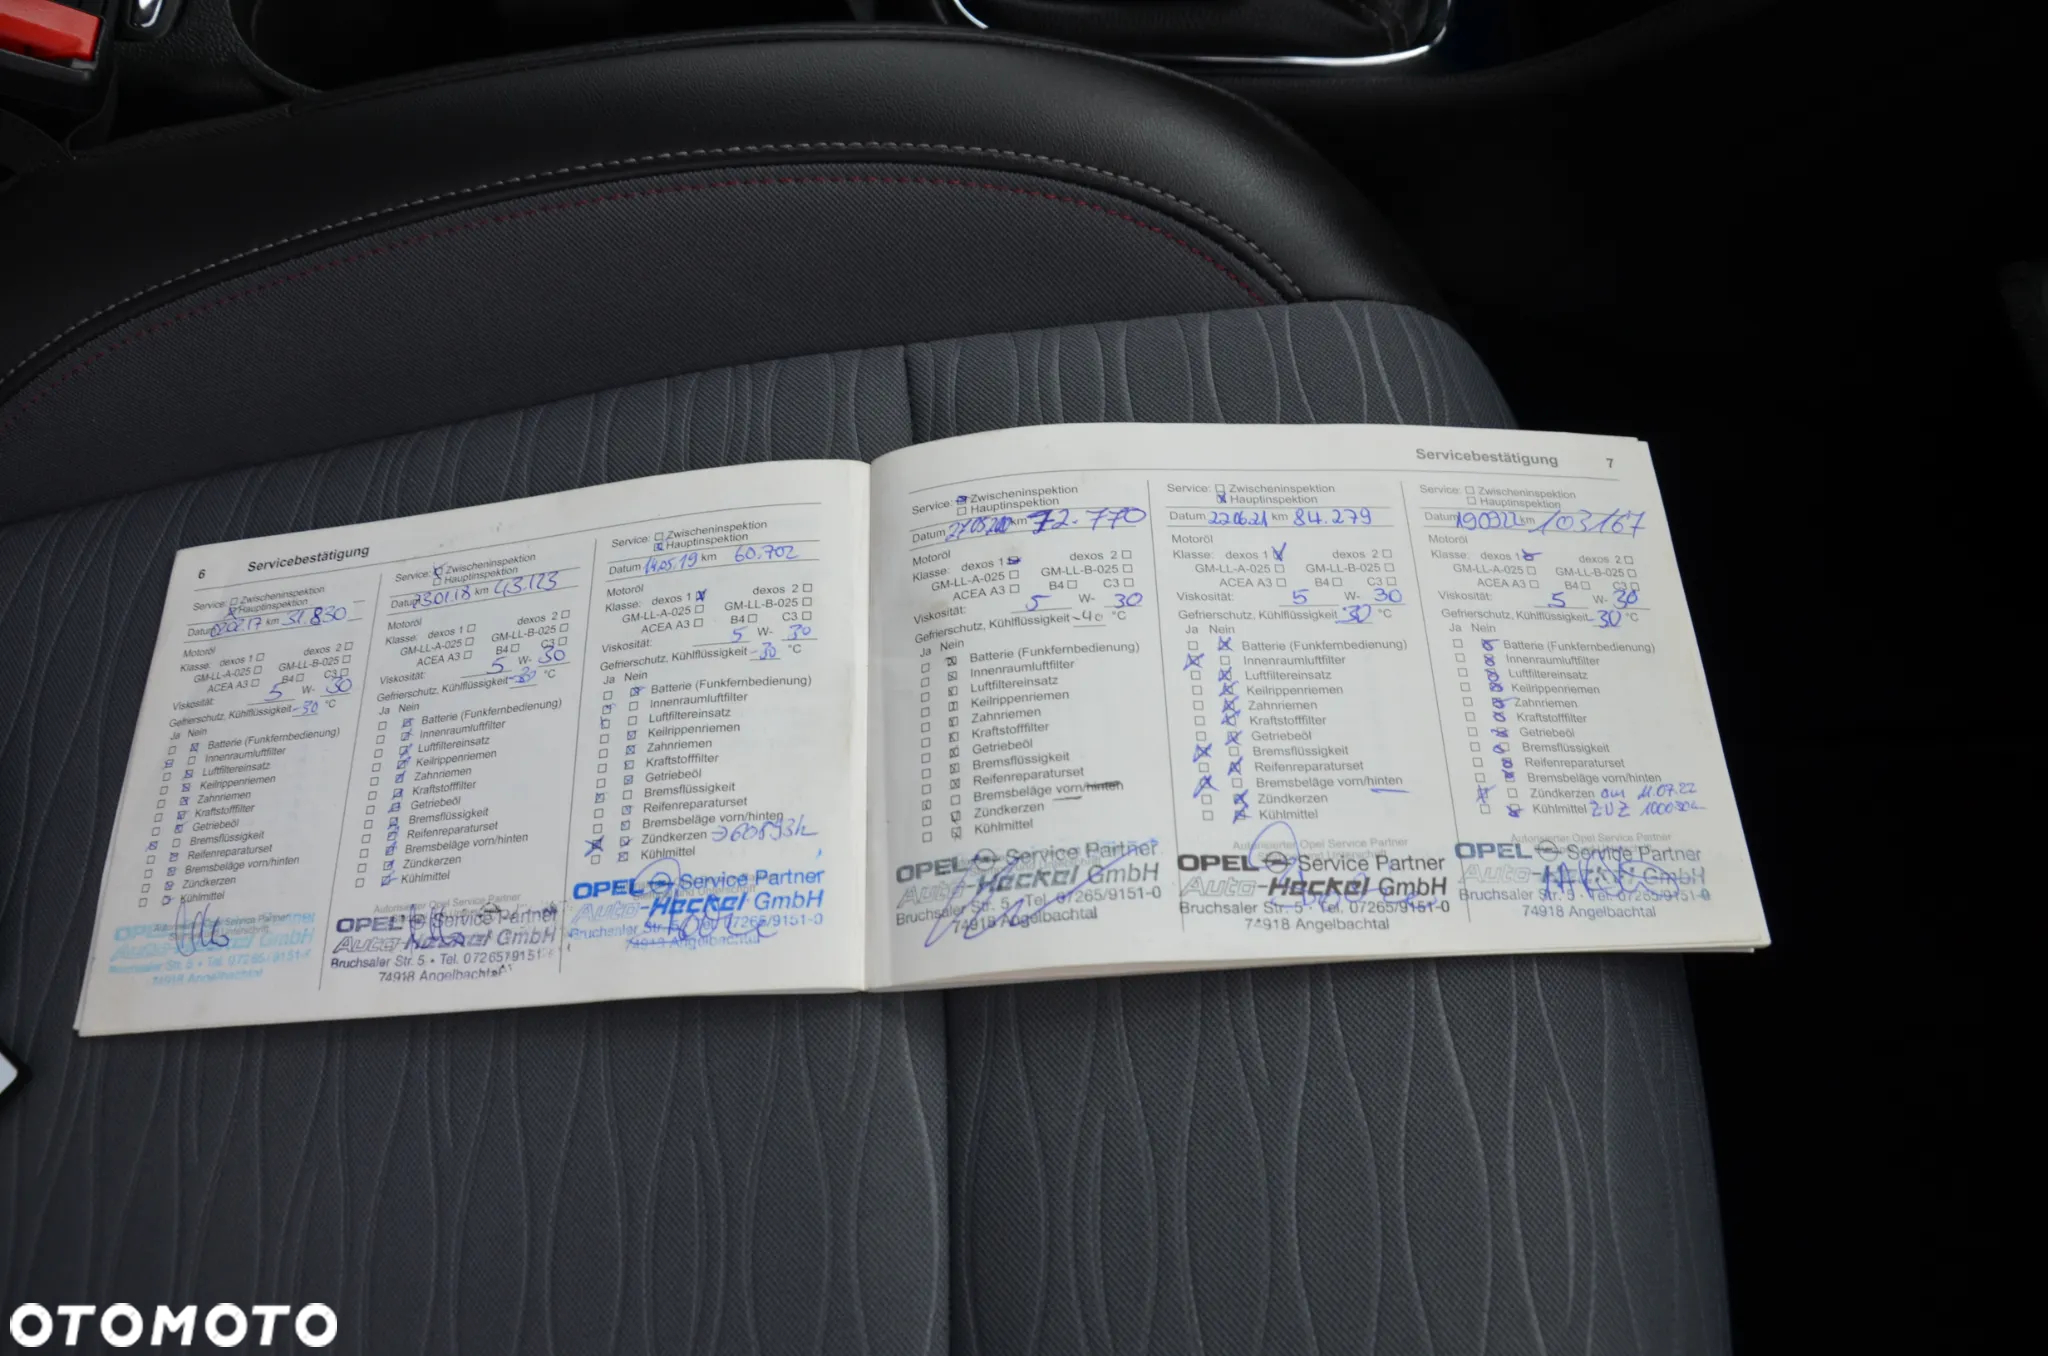 6 Servicebestätigung
Service: Zwischeninspektion
Hauptinspektion
Datum 02.02.17 km 31.830
Motoröl
Klasse: dexos 1 dexos 2
GM-LL-A-025 GM-LL-B-025
ACEA A3 B4 C3
Viskosität: 5 W- 30
Gefrierschutz, Kühlflüssigkeit -30 °C
Ja Nein
Batterie (Funkfernbedienung)
Innenraumluftfilter
Luftfiltereinsatz
Keilrippenriemen
Zahnriemen
Kraftstofffilter
Getriebeöl
Bremsflüssigkeit
Reifenreparaturset
Bremsbeläge vorn/hinten
Zündkerzen
Kühlmittel
OPEL Service Partner
Auto-Heckel GmbH
Bruchsaler Str. 5 • Tel. 07265/9151-0
74918 Angelbachtal
Service: Zwischeninspektion
Hauptinspektion
Datum 23.01.18 km 43.123
Motoröl
Klasse: dexos 1 dexos 2
GM-LL-A-025 GM-LL-B-025
ACEA A3 B4 C3
Viskosität: 5 W- 30
Gefrierschutz, Kühlflüssigkeit -30 °C
Ja Nein
Batterie (Funkfernbedienung)
Innenraumluftfilter
Luftfiltereinsatz
Keilrippenriemen
Zahnriemen
Kraftstofffilter
Getriebeöl
Bremsflüssigkeit
Reifenreparaturset
Bremsbeläge vorn/hinten
Zündkerzen
Kühlmittel
Autorisierter Opel Service Partner
OPEL Service Partner
Auto-Heckel GmbH
Bruchsaler Str. 5 • Tel. 07265/9151-0
74918 Angelbachtal
Service: Zwischeninspektion
Hauptinspektion
Datum 14.05.19 km 60.702
Motoröl
Klasse: dexos 1 dexos 2
GM-LL-A-025 GM-LL-B-025
ACEA A3 B4 C3
Viskosität: 5 W- 30
Gefrierschutz, Kühlflüssigkeit -30 °C
Ja Nein
Batterie (Funkfernbedienung)
Innenraumluftfilter
Luftfiltereinsatz
Keilrippenriemen
Zahnriemen
Kraftstofffilter
Getriebeöl
Bremsflüssigkeit
Reifenreparaturset
Bremsbeläge vorn/hinten
Zündkerzen
Kühlmittel
OPEL Service Partner
Auto-Heckel GmbH
Bruchsaler Str. 5 Tel. 07265/9151-0
74918 Angelbachtal
Servicebestätigung 7
Service: Zwischeninspektion
Hauptinspektion
Datum 27.05.20 km 72.770
Motoröl
Klasse: dexos 1 dexos 2
GM-LL-A-025 GM-LL-B-025
ACEA A3 B4 C3
Viskosität: 5 W- 30
Gefrierschutz, Kühlflüssigkeit -40 °C
Ja Nein
Batterie (Funkfernbedienung)
Innenraumluftfilter
Luftfiltereinsatz
Keilrippenriemen
Zahnriemen
Kraftstofffilter
Getriebeöl
Bremsflüssigkeit
Reifenreparaturset
Bremsbeläge vorn/hinten
Zündkerzen
Kühlmittel
OPEL Service Partner
Auto-Heckel GmbH
Bruchsaler Str. 5 • Tel. 07265/9151-0
74918 Angelbachtal
Service: Zwischeninspektion
Hauptinspektion
Datum 22.06.21 km 84.279
Motoröl
Klasse: dexos 1 dexos 2
GM-LL-A-025 GM-LL-B-025
ACEA A3 B4 C3
Viskosität: 5 W- 30
Gefrierschutz, Kühlflüssigkeit -30 °C
Ja Nein
Batterie (Funkfernbedienung)
Innenraumluftfilter
Luftfiltereinsatz
Keilrippenriemen
Zahnriemen
Kraftstofffilter
Getriebeöl
Bremsflüssigkeit
Reifenreparaturset
Bremsbeläge vorn/hinten
Zündkerzen
Kühlmittel
Autorisierter Opel Service Partner
OPEL Service Partner
Auto-Heckel GmbH
Bruchsaler Str. 5 • Tel. 07265/9151-0
74918 Angelbachtal
Service: Zwischeninspektion
Hauptinspektion
Datum 190922 km 103167
Motoröl
Klasse: dexos 1 dexos 2
GM-LL-A-025 GM-LL-B-025
ACEA A3 B4 C3
Viskosität: 5 W- 30
Gefrierschutz, Kühlflüssigkeit -30 °C
Ja Nein
Batterie (Funkfernbedienung)
Innenraumluftfilter
Luftfiltereinsatz
Keilrippenriemen
Zahnriemen
Kraftstofffilter
Getriebeöl
Bremsflüssigkeit
Reifenreparaturset
Bremsbeläge vorn/hinten
Zündkerzen am 11.07.22
Kühlmittel
Autorisierter Opel Service Partner
OPEL Service Partner
Auto-Heckel GmbH
Bruchsaler Str. 5 • Tel. 07265/9151-0
74918 Angelbachtal
OTOMOTO